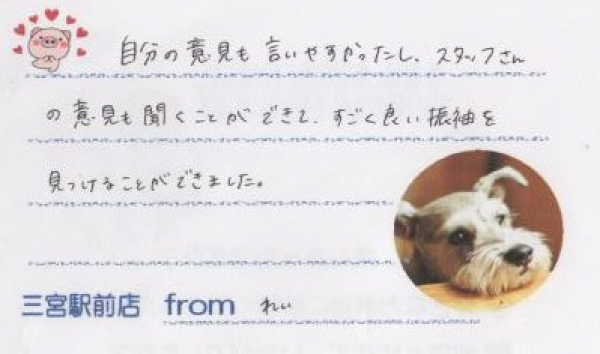 自分の意見も言いやすかったし、スタッフさん
の意見も聞くことができて、すごく良い振袖を
見つけることができました。
三宮駅前店 from れい